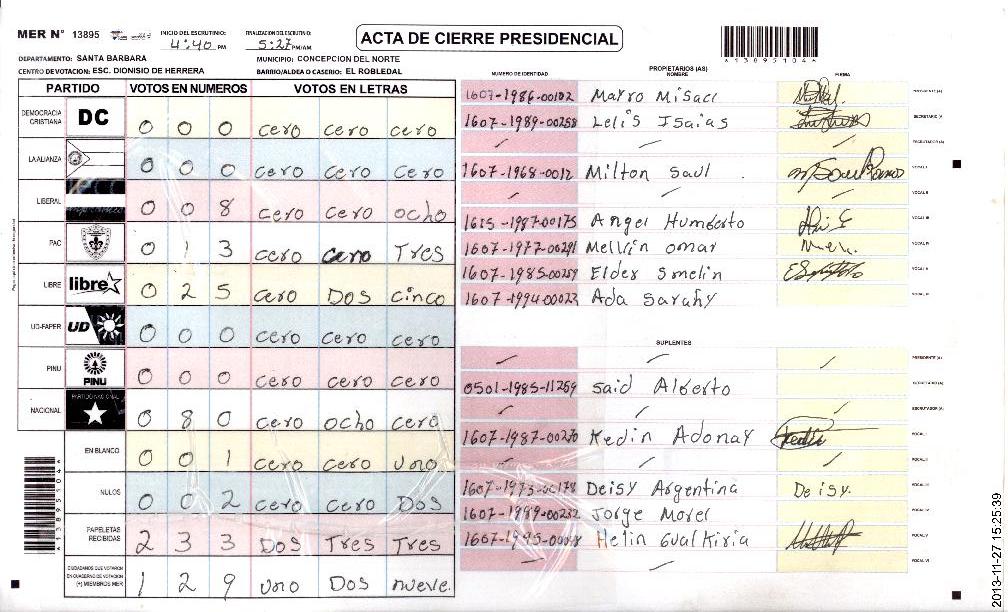 MER N° 13895
INICIO DEL ESCRUTINIO: 4:40 PM
FINALIZACION DEL ESCRUTINIO: 5:27 PM/AM
ACTA DE CIERRE PRESIDENCIAL
*13895104*
DEPARTAMENTO: SANTA BARBARA
MUNICIPIO: CONCEPCION DEL NORTE
CENTRO DE VOTACION: ESC. DIONISIO DE HERRERA
BARRIO/ALDEA O CASERIO: EL ROBLEDAL
PARTIDO VOTOS EN NUMEROS VOTOS EN LETRAS
DEMOCRACIA CRISTIANA DC 0 0 0 cero cero cero
LA ALIANZA 0 0 0 cero cero cero
LIBERAL 0 0 8 cero cero ocho
PAC 0 1 3 cero cero Tres
LIBRE libre 0 2 5 cero DOS cinco
UD-FAPER UD 0 0 0 cero cero cero
PINU PINU 0 0 0 cero cero cero
NACIONAL PARTIDO NACIONAL 0 8 0 cero ocho cero
EN BLANCO 0 0 1 cero cero uno
NULOS 0 0 2 cero cero DOS
PAPELETAS RECIBIDAS 2 3 3 DOS Tres Tres
CIUDADANOS QUE VOTARON EN CUADERNO DE VOTACION (+) MIEMBROS MER) 1 2 9 uno DOS nueve.
*13895104*
PROPIETARIOS (AS)
NUMERO DE IDENTIDAD NOMBRE FIRMA
1607-1986-00102 Mayro Misael PRESIDENTE (A)
1607-1989-00258 Lelis Isaias SECRETARIO (A)
ESCRUTADOR (A)
1607-1968-0012 Milton Saul VOCAL I
VOCAL II
1615-1987-00175 Angel Humberto VOCAL III
1607-1977-00291 Melvin omar VOCAL IV
1607-1985-00259 Elder Smelin VOCAL V
1607-1994-00023 Ada Sarahy VOCAL VI
SUPLENTES
PRESIDENTE (A)
0501-1985-11269 Said Alberto SECRETARIO (A)
ESCRUTADOR (A)
1607-1987-00270 Kedin Adonay VOCAL I
VOCAL II
1607-1975-00178 Deisy Argentina Deisy. VOCAL III
1607-1989-00232 Jorge Morel VOCAL IV
Helin Gualkiria VOCAL V
VOCAL VI
2013-11-27 15:25:39